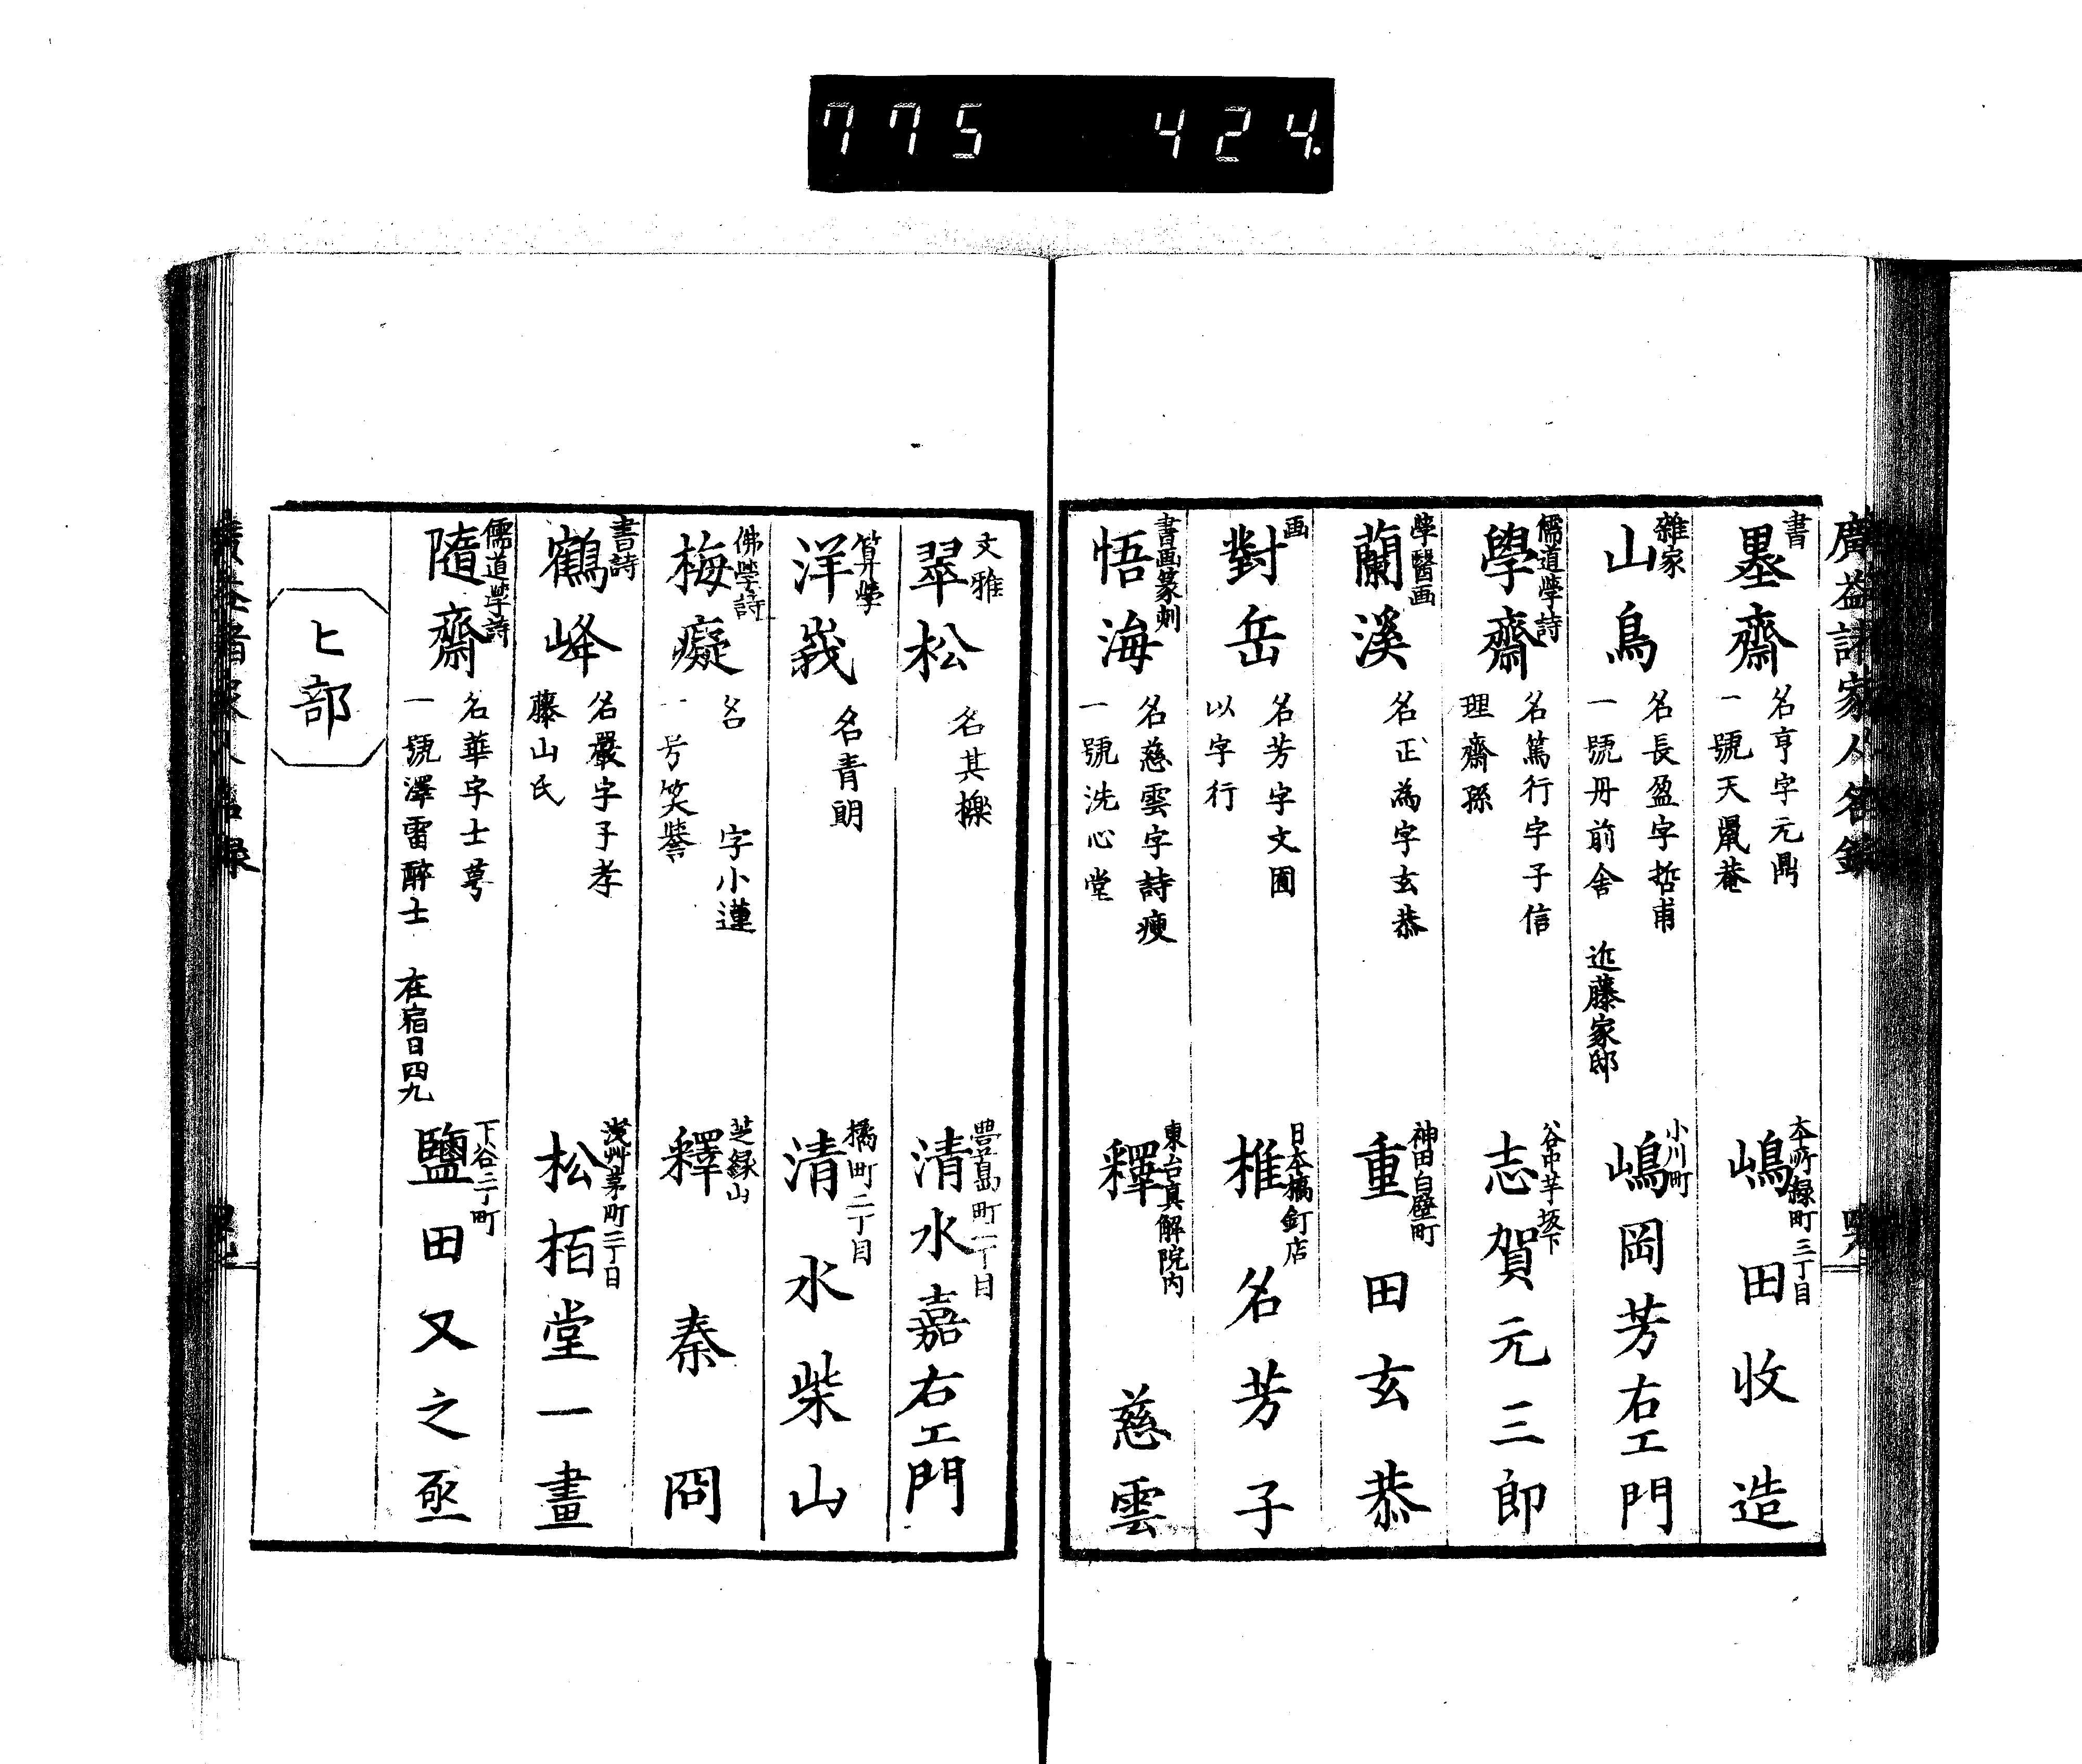 775 424.
廣益諸家人名録
書
墨齋
名亨字元鼎
一號天鼠菴
本所緑町三丁目
嶋田收造
雜家
山鳥
名長盈字哲甫
一號丹前舎 近藤家邸
小川町
嶋岡芳右エ門
儒道學詩
學齋
名篤行字子信
理齋孫
谷中芋坂下
志賀元三郎
學醫画
蘭溪
名正為字玄恭
神田白壁町
重田玄恭
画
對岳
名芳字文圃
以字行
日本橋釘店
椎名芳子
書画篆刻
悟海
名慈雲字詩瘦
一號洗心堂
東台真解院内
釋慈雲
文雅
翠松
名其櫟
豊島町一丁目
清水嘉右エ門
算學
洋峩
名青朗
橘町二丁目
清水柴山
佛學詩
梅癡
名 字小蓮
一号笑誉
芝緑山
釋秦冏
書詩
鶴峰
名嚴字子孝
藤山氏
浅艸茅町二丁目
松栢堂一畫
儒道學詩
隨齋
名華字士萼
一號澤雷醉士 在宿日四九
下谷二丁町
鹽田又之亟
ヒ部